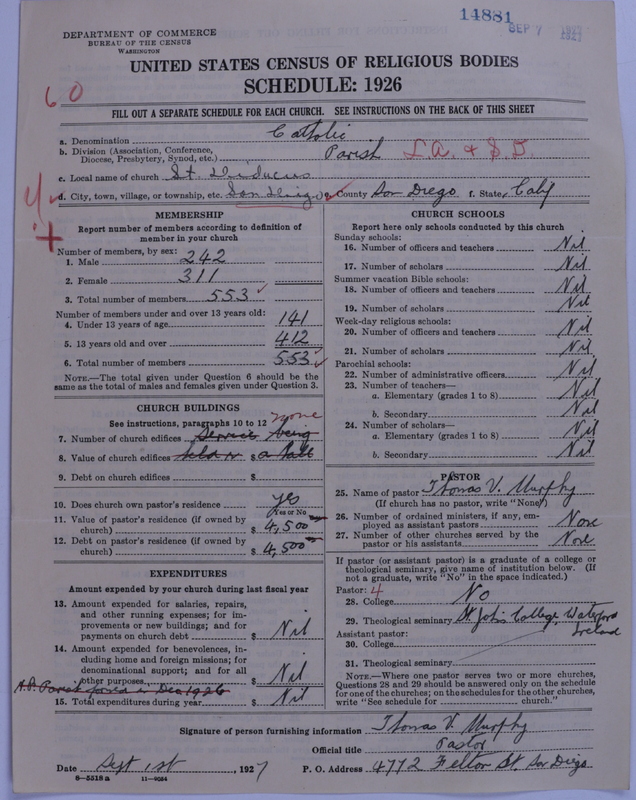 14881
SEP 7 1927
DEPARTMENT OF COMMERCE
BUREAU OF THE CENSUS
WASHINGTON
UNITED STATES CENSUS OF RELIGIOUS BODIES
SCHEDULE: 1926
60
FILL OUT A SEPARATE SCHEDULE FOR EACH CHURCH. SEE INSTRUCTIONS ON THE BACK OF THIS SHEET
a. Denomination Catholic
b. Division (Association, Conference, Diocese, Presbytery, Synod, etc.) Parish L.A. & S.D.
c. Local name of church St. Didacus
d. City, town, village, or township, etc. San Diego e. County San Diego f. State Calif
MEMBERSHIP
Report number of members according to definition of
member in your church
Number of members, by sex:
1. Male 242
2. Female 311
3. Total number of members 553
Number of members under and over 13 years old:
4. Under 13 years of age 141
5. 13 years old and over 412
6. Total number of members 553
NOTE.—The total given under Question 6 should be
same as the total of males and females given under Question 3.
CHURCH BUILDINGS
See instructions, paragraphs 10 to 12 none
7. Number of church edifices Service being
8. Value of church edifices held in $ a hall
9. Debt on church edifices $
10. Does church own pastor's residence yes
Yes or No
11. Value of pastor's residence (if owned by
church) $ 4,500
12. Debt on pastor's residence (if owned by
church) $ 4,500
EXPENDITURES
Amount expended by your church during last fiscal year
13. Amount expended for salaries, repairs,
and other running expenses; for im-
provements or new buildings; and for
payments on church debt $ Nil
14. Amount expended for benevolences, in-
cluding home and foreign missions; for
denominational support; and for all
other purposes $ Nil
Parish formed in Dec 1926
15. Total expenditures during year $ Nil
CHURCH SCHOOLS
Report here only schools conducted by this church
Sunday schools:
16. Number of officers and teachers Nil
17. Number of scholars Nil
Summer vacation Bible schools:
18. Number of officers and teachers Nil
19. Number of scholars Nil
Week-day religious schools:
20. Number of officers and teachers Nil
21. Number of scholars Nil
Parochial schools:
22. Number of administrative officers Nil
23. Number of teachers—
a. Elementary (grades 1 to 8) Nil
b. Secondary Nil
24. Number of scholars—
a. Elementary (grades 1 to 8) Nil
b. Secondary Nil
PASTOR
25. Name of pastor Thomas V. Murphy
(If church has no pastor, write "None")
26. Number of ordained ministers, if any, em-
ployed as assistant pastors None
27. Number of other churches served by the
pastor or his assistants None
If pastor (or assistant pastor) is a graduate of a college or
theological seminary, give name of institution below. (If
not a graduate, write "No" in the space indicated.)
Pastor: 4
28. College No
29. Theological seminary St. John's College, Waterford
Ireland
Assistant pastor:
30. College
31. Theological seminary
NOTE.—Where one pastor serves two or more churches,
Questions 28 and 29 should be answered only on the schedule
for one of the churches; on the schedules for the other churches,
write "See schedule for church."
Signature of person furnishing information Thomas V. Murphy
Official title Pastor
Date Sept 1st, 1927 P. O. Address 4772 Felton St. San Diego
8—5518 a 11—9034